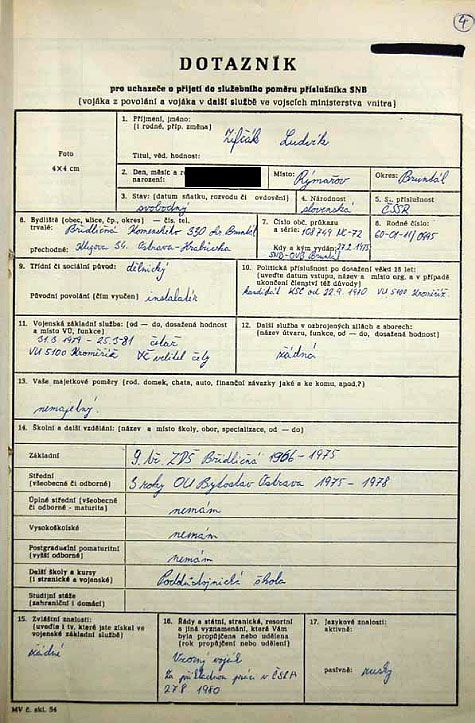 4
DOTAZNÍK
pro uchazeče o přijetí do služebního poměru příslušníka SNB
(vojáka z povolání a vojáka v další službě ve vojscích ministerstva vnitra)
Foto
4×4 cm
1. Příjmení, jméno:
(i rodné, příp. změna)
Zifčák Ludvík
Titul, věd. hodnost:
2. Den, měsíc a
narození:
Místo: Rýmařov
Okres: Bruntál
3. Stav: (datum sňatku, rozvodu či ovdovění)
svobodný
4. Národnost
slovenská
5. St. příslušnost
ČSSR
6. Bydliště (obec, ulice, čp., okres) — čís. tel.
trvalé: Břidličná Komenského 330 Bruntál
přechodné: 34. Ostrava-Hrabůvka
7. Číslo obč. průkazu
Kdy a kým vydán:
8. Rodné číslo:
9. Třídní či sociální původ: dělnický
Původní povolání (čím vyučen) instalatér
10. Politická příslušnost po dosažení věku 28 let:
(uveďte datum vstupu, název a místo org. a v případě
ukončení členství též důvody)
kandidát KSČ od VÚ 5100 Kroměříž
11. Vojenská základní služba: (od — do, dosažená hodnost
a místo VÚ, funkce)
četař
VÚ 5100 Kroměříž velitel čety
12. Další služba v ozbrojených silách a sborech:
(název útvaru, funkce, od — do, dosažená hodnost)
žádná
13. Vaše majetkové poměry (rod. domek, chata, auto, finanční závazky jaké a ke komu, apod.?)
nemajetný
14. Školní a další vzdělání: (název a místo školy, obor, specializace, od — do)
Základní
9. tř. ZDŠ Břidličná 1966 - 1975
Střední
(všeobecné či odborné)
3 roky OU Bytostav Ostrava 1975 - 1978
Úplné střední (všeobecné
či odborné - maturita)
nemám
Vysokoškolské
nemám
Postgraduální pomaturitní
(vyšší odborné)
nemám
Další školy a kursy
(i stranické a vojenské)
Poddůstojnická škola
Studijní stáže
(zahraniční i domácí)
15. Zvláštní znalosti:
(uveďte i ty, které jste získal ve
vojenské základní službě)
žádné
16. Řády a státní, stranické, resortní
a jiná vyznamenání, které Vám
byla propůjčena nebo udělena
(rok propůjčení nebo udělení)
Vzorný voják
Za příkladnou práci v ČSLA
27.8 1980
17. Jazykové znalosti:
aktivně:
pasivně: rusky
MV č. skl. 56